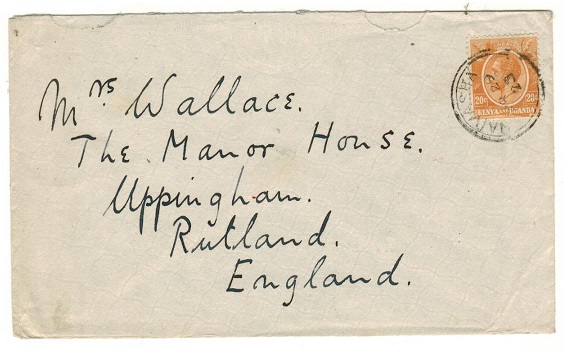 Mrs Wallace.
The Manor House.
Uppingham.
Rutland.
England.
20c 20c
KENYA AND UGANDA
NAIVASHA